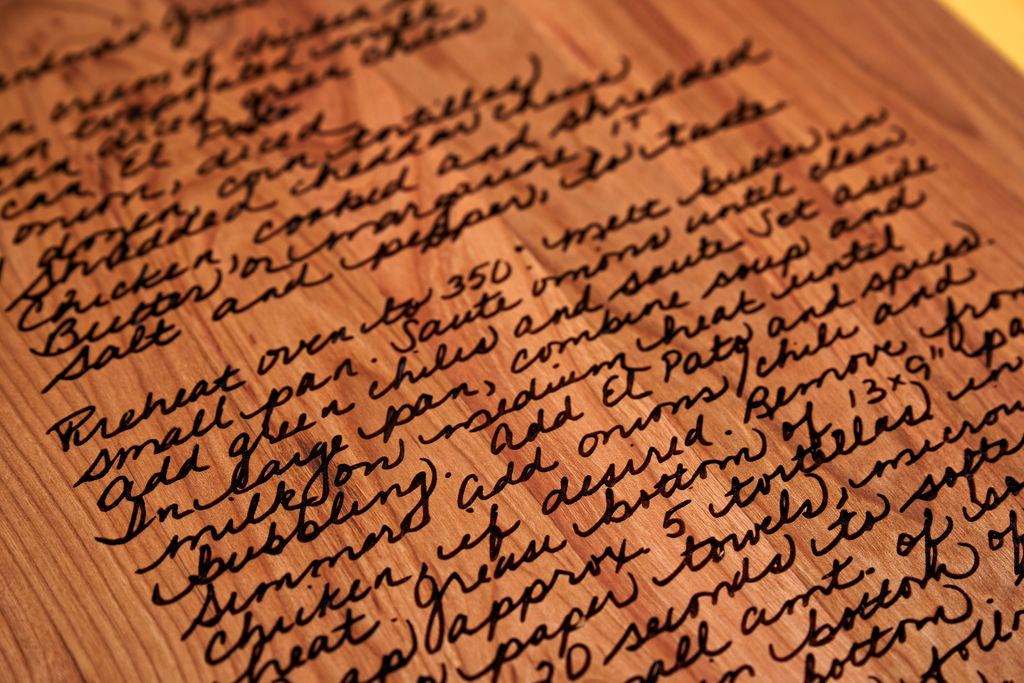 cream of chicken
evaporated milk
can diced green chiles
can El Pato
onion, diced
dozen corn tortillas
shredded cheddar cheese
chicken, cooked and shredded
Butter or margarine, 1T
salt and pepper, to taste
Preheat oven to 350°. melt butter in
small pan. Saute onions until clear.
add green chiles and saute. Set aside
In large pan, combine soup and
milk on medium heat until
bubbling. add El Pato and spices.
simmer, add onions/chile and
chicken, if desired. Remove from
heat. grease bottom of 13x9" pa
approx. 5 tortillas in
paper towels, microw
20 seconds to softe
small amt. of
bottom of
bottom.